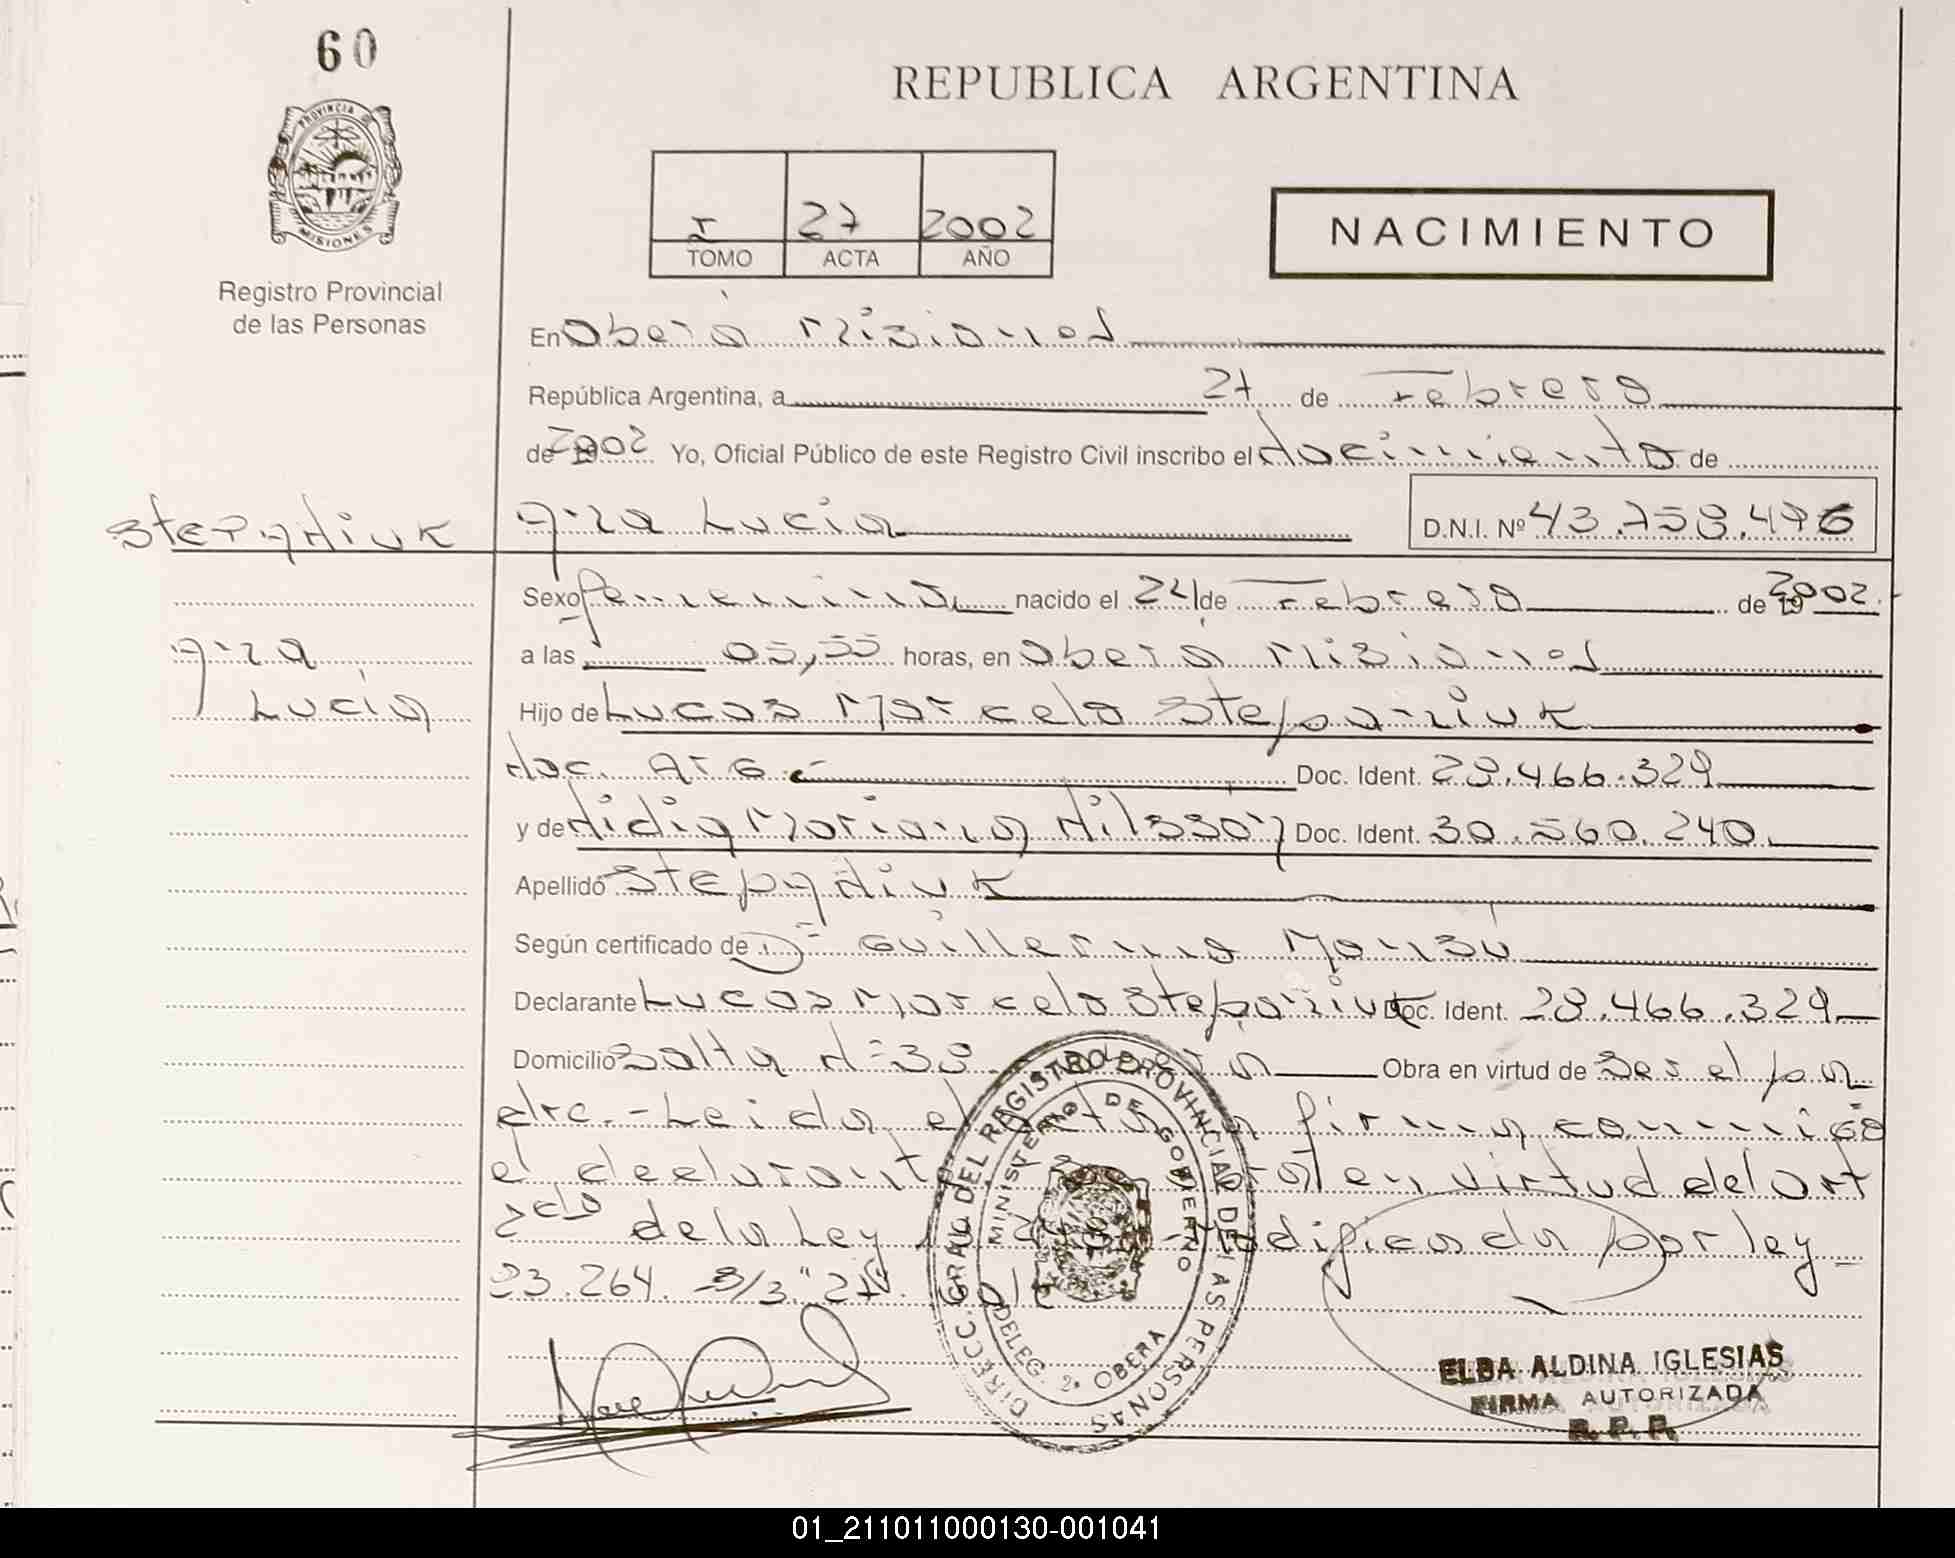 60
PROVINCIA DE
MISIONES
Registro Provincial
de las Personas
REPUBLICA ARGENTINA
I 27 2002
TOMO ACTA AÑO
NACIMIENTO
En Oberá Misiones
República Argentina, a 27 de Febrero
de 2002 Yo, Oficial Público de este Registro Civil inscribo el Nacimiento de
STEPANIUK Ana Lucía
D.N.I. Nº
Sexo femenino nacido el 24 de Febrero de 2002.
Ana
Lucía
a las 05,55 horas, en Oberá Misiones
Hijo de Lucas Marcelo Stepaniuk
Nac. Arg. Doc. Ident. 28.466.329
y de Nidia Mariana Nilsson Doc. Ident. 30.560.240.
Apellido STEPANIUK
Según certificado de Dr Guillermo
Declarante Lucas Marcelo Stepaniuk Doc. Ident. 28.466.329
Domicilio Salta Nº 38 Oberá Obra en virtud de Ser el pa
dre.- Leida el Acta la firma conmigo
el declarante en virtud del art
2do de la Ley modificada por ley
23.264.
DIRECC. GRAL. DEL REGISTRO PROVINCIAL DE LAS PERSONAS
MINISTERIO DE GOBIERNO
DELEG. 2ª OBERA
ELBA ALDINA IGLESIAS
FIRMA AUTORIZADA
R. P. P.
01_211011000130-001041